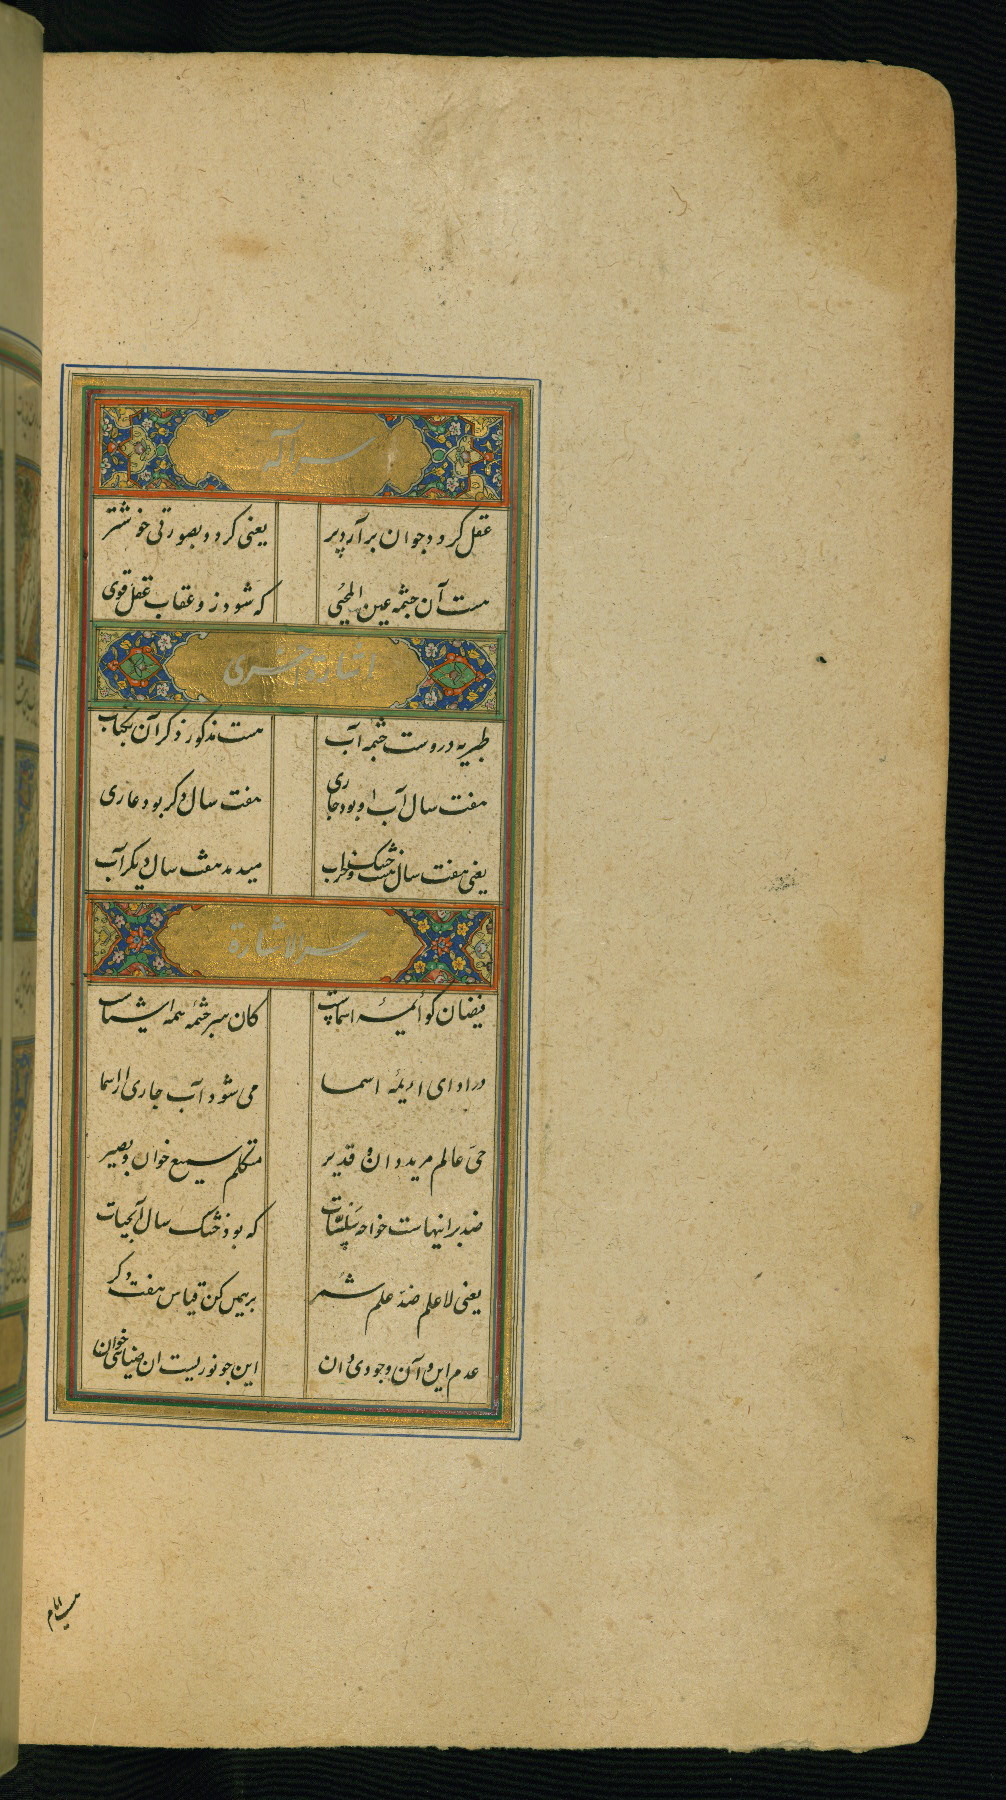 سر آنکه
عقل گردد جوان برآرد پر یعنی گردد بصورتی خوشتر
هست آن چشمه عین المحیی که شود زو عقاب عقل قوی
اشارة اخری
طبریه دروست چشمه آب هست مذکور ذکر آن بکتاب
هفت سال آب او بود جاری هفت سال دگر بود عاری
یعنی هفت سال هست خشک و خراب میدهد هفت سال دیگر آب
سر الاشارة
فیضان کو ائمیهٔ اسماست کان سبر چشمهٔ همه اشیاست
در ادای ائمهٔ اسما می شود آب جاری از اسما
حی عالم مرید دان و قدیر متکلم سمیع خوان و بصیر
ضد برانیهاست خواجه که بود خشک سال آبحیات
یعنی لاعلم ضد علم شمر برهمین کن قیاس هفت دگر
عدم این و آن وجودی دان این چو نوریست آن ضیاش خوان
هست ایام